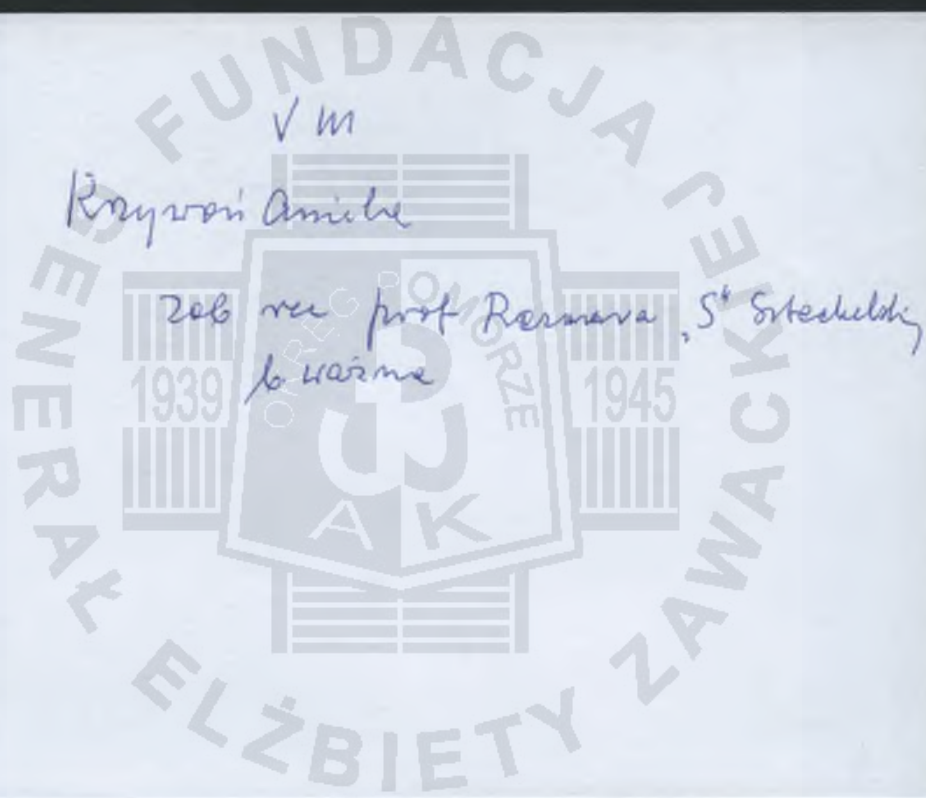 V M
Krzywoń Aniela
zob rec prof Razmara „S"
b ważne
FUNDACJA JENERAŁ ELŻBIETY ZAWACKIEJ
OKRĘG POMORZE
1939 1945
A K